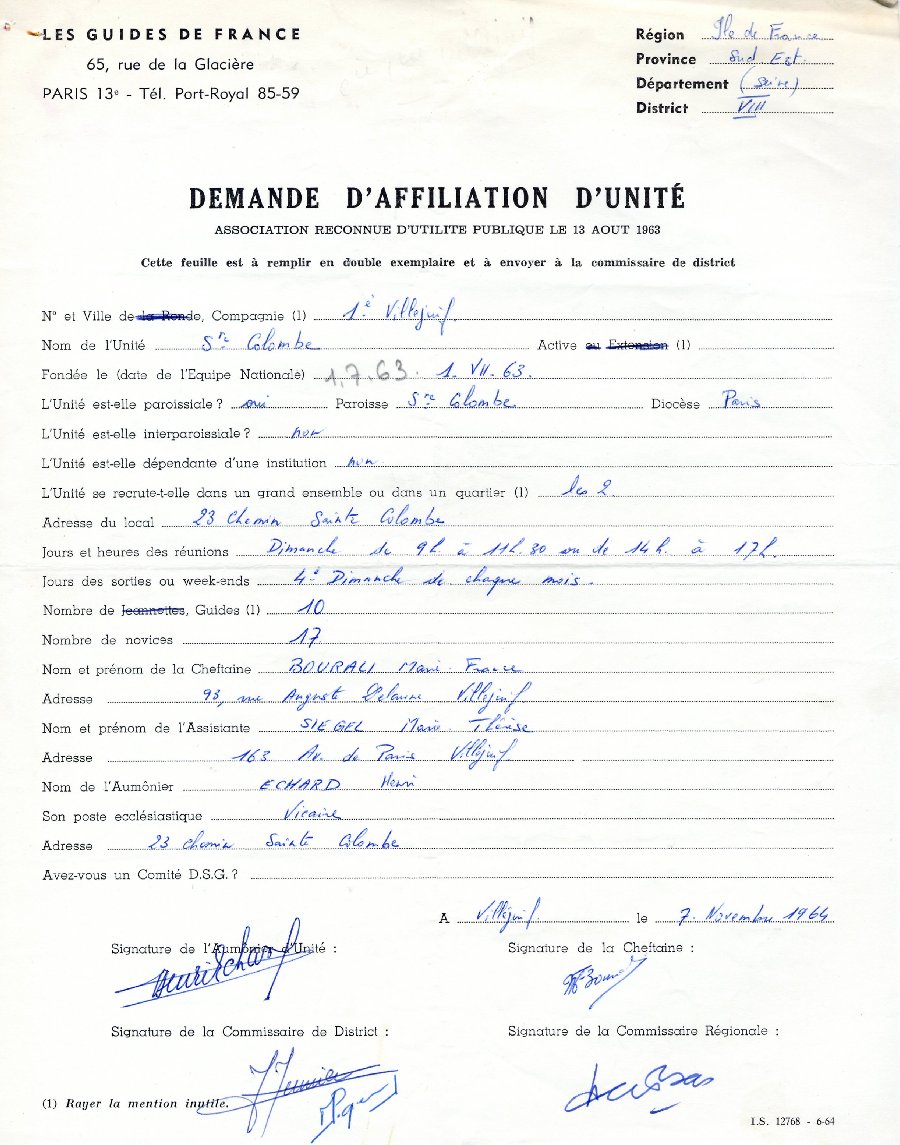 LES GUIDES DE FRANCE
65, rue de la Glacière
PARIS 13e - Tél. Port-Royal 85-59
Région Ile de France
Province Sud Est.
Département (Seine)
District VIII
DEMANDE D'AFFILIATION D'UNITÉ
ASSOCIATION RECONNUE D'UTILITE PUBLIQUE LE 13 AOUT 1963
Cette feuille est à remplir en double exemplaire et à envoyer à la commissaire de district
N° et Ville de la Ronde, Compagnie (1) 1è Villejuif.
Nom de l'Unité Ste Colombe Active ou Extension (1)
Fondée le (date de l'Equipe Nationale) 1.7.63. 1. VII. 63.
L'Unité est-elle paroissiale ? oui Paroisse Ste Colombe Diocèse Paris
L'Unité est-elle interparoissiale ? non
L'Unité est-elle dépendante d'une institution non
L'Unité se recrute-t-elle dans un grand ensemble ou dans un quartier (1) les 2
Adresse du local 23 Chemin Sainte Colombe
Jours et heures des réunions Dimanche de 9h. à 11h.30 ou de 14h. à 17h.
Jours des sorties ou week-ends 4è Dimanche de chaque mois.
Nombre de Jeannettes, Guides (1) 10
Nombre de novices 17
Nom et prénom de la Cheftaine BOURALI Marie-France
Adresse 93, rue Auguste Delaune Villejuif
Nom et prénom de l'Assistante SIEGEL Marie-Thérèse
Adresse 163 Av. de Paris Villejuif
Nom de l'Aumônier ECHARD Henri
Son poste ecclésiastique Vicaire
Adresse 23 chemin Sainte Colombe
Avez-vous un Comité D.S.G. ?
A Villejuif. le 7. Novembre 1964
Signature de l'Aumônier d'Unité : Signature de la Cheftaine :
Signature de la Commissaire de District : Signature de la Commissaire Régionale :
(1) Rayer la mention inutile.
I.S. 12768 - 6-64